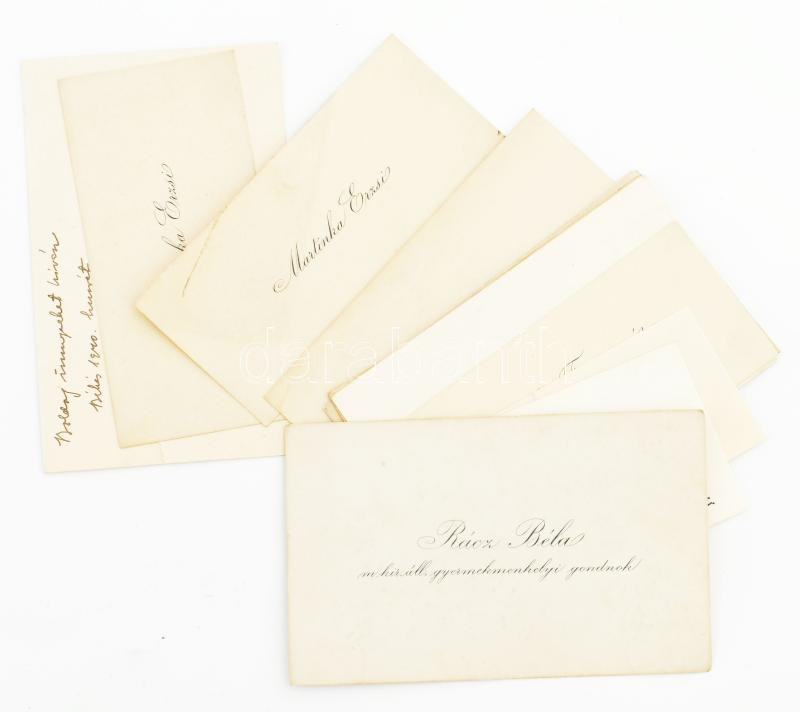 ka Erzsi
Boldog ünnepeket kíván
1940. húsvét
Martinka Erzsi
darabanth
Rácz Béla
m. kir. áll. gyermekmenhelyi gondnok